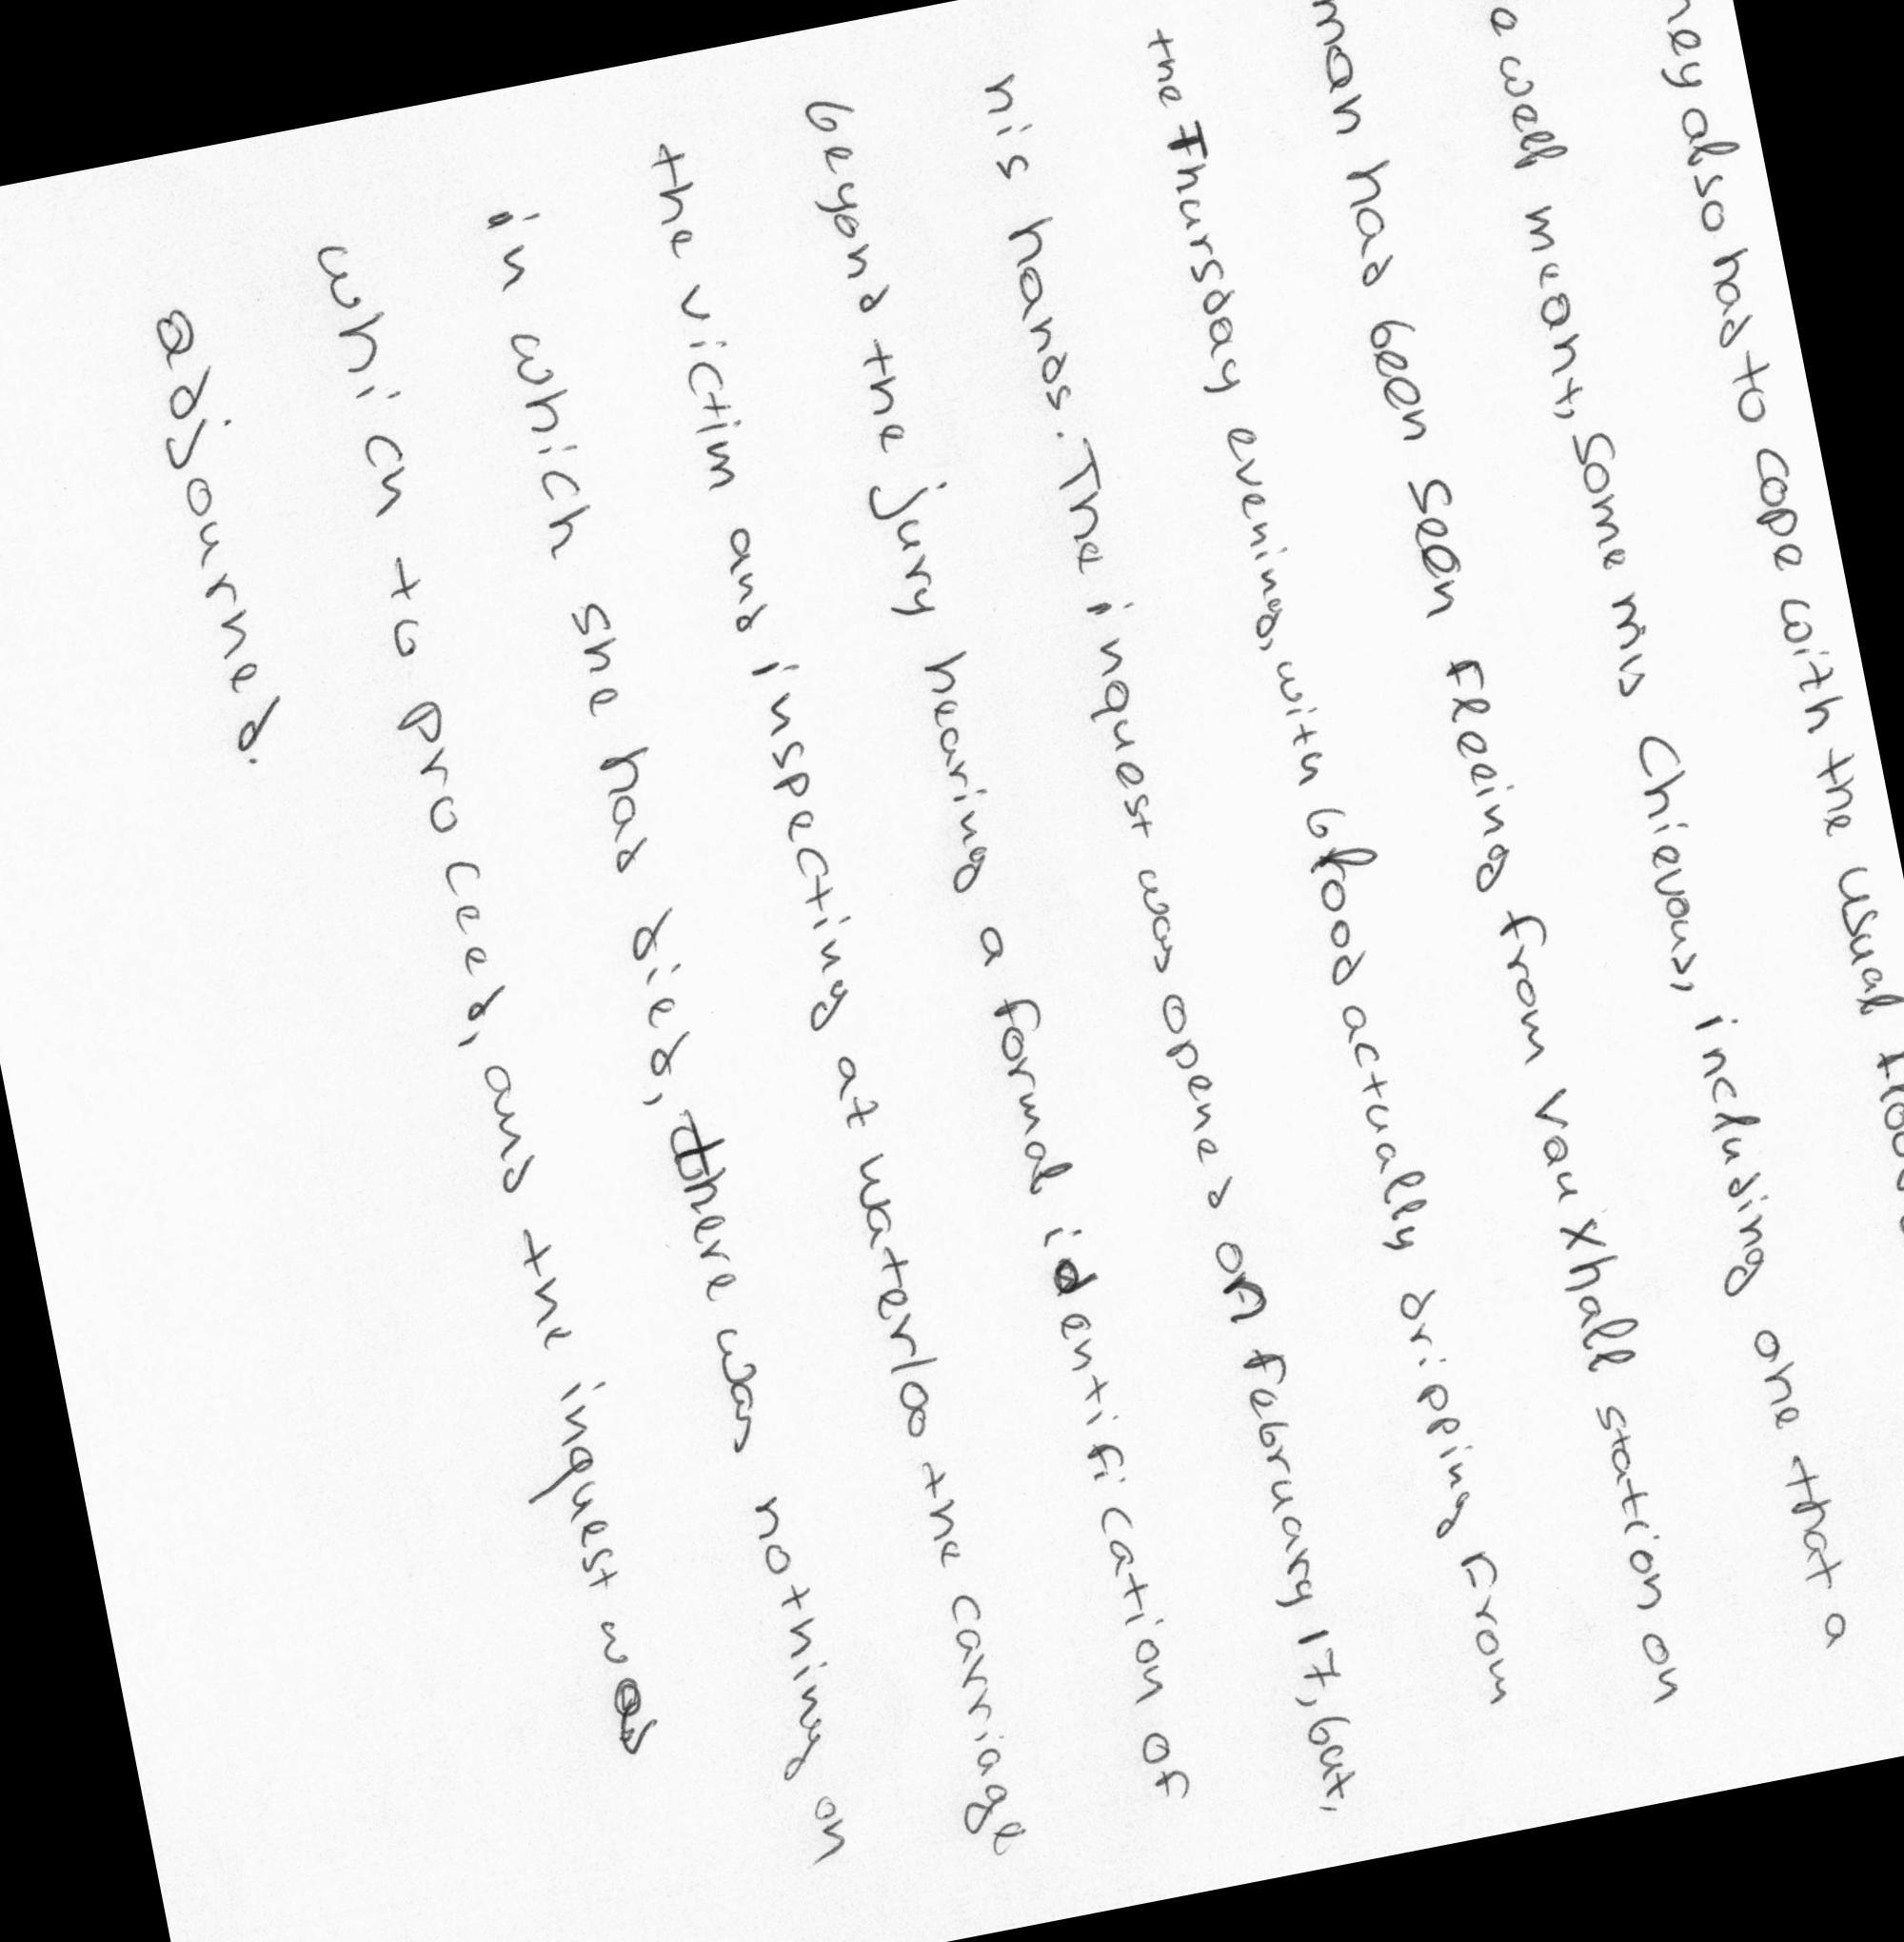 also had to cope with the usual
well meant, some mis chievous, including one that a
man had been seen fleeing from Vauxhall station on
the Thursday evening, with blood actually dripping From
his hands. The inquest was opened on February 17, but,
beyond the jury hearing a formal identification of
the victim and inspecting at waterloo the carriage
in which she had died, there was nothing on
which to proceed, and the inquest was
adjourned.